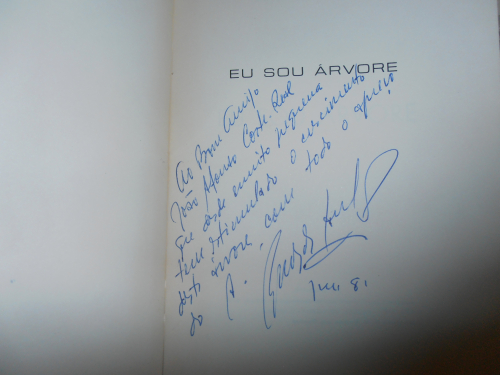 EU SOU ÁRVORE
Ao Bom Amigo
João Afonso Corte-Real
que desde muito pequena
tem estimulado o crescimento
desta árvore, com todo o apreço
do A.
81